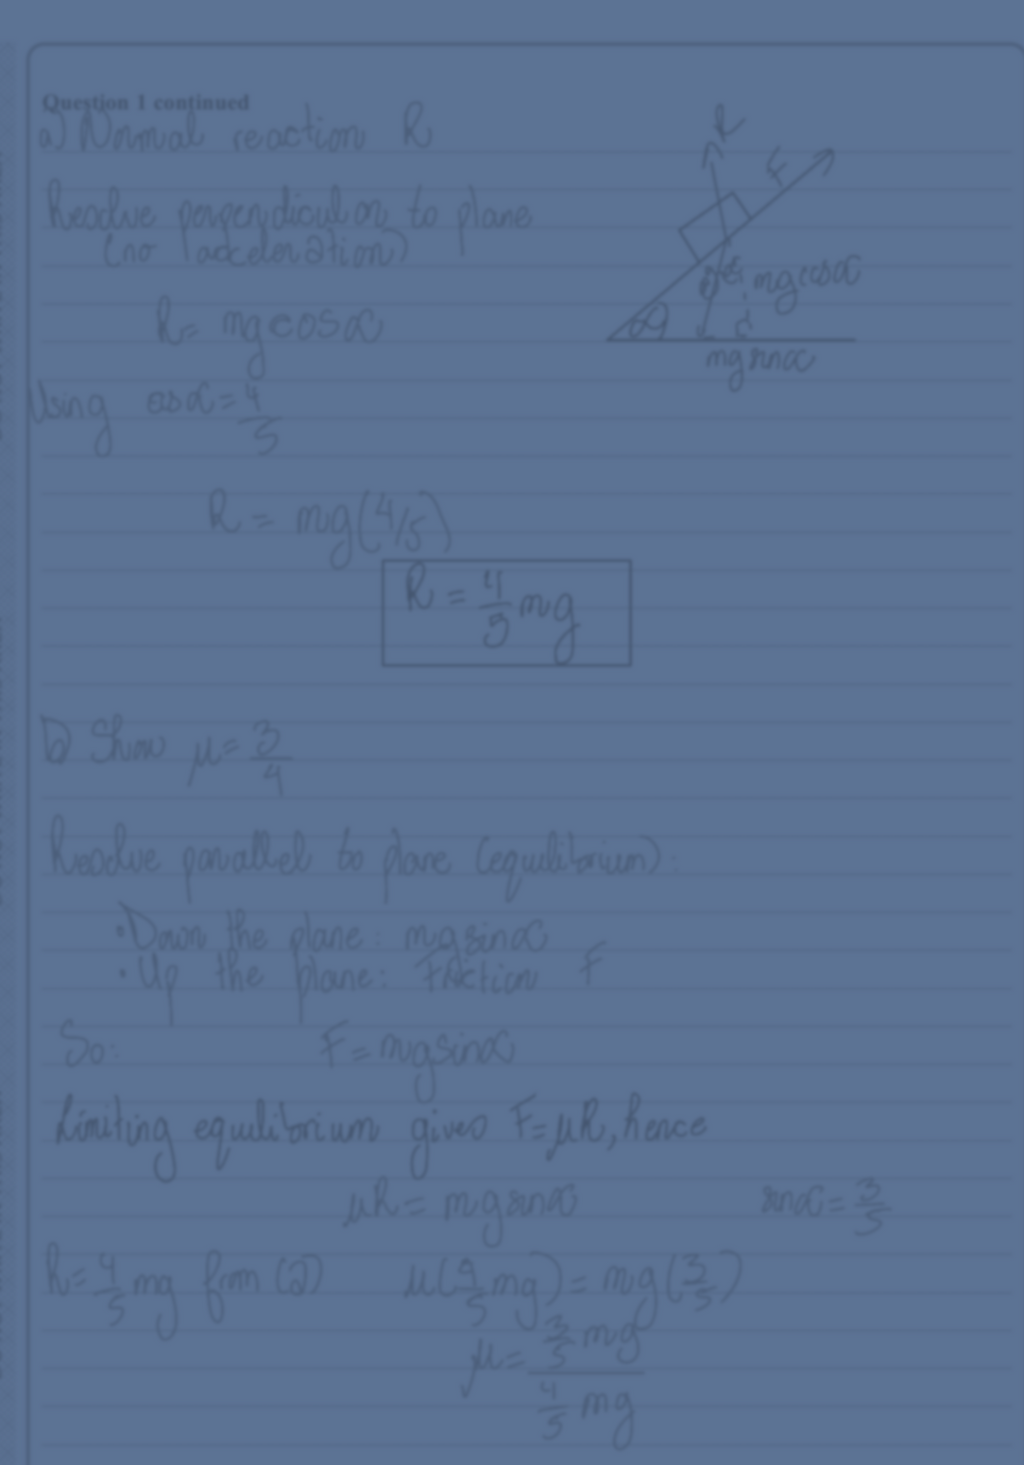 Question 1 continued
a) Normal reaction R
Resolve perpendicular to plane
(no acceleration)
R = mgcosα
Using cosα = 4/5
R = mg(4/5)
R = 4/5 mg
R
F
α
mgcosα
α
mgsinα
b) Show μ = 3/4
Resolve parallel to plane (equilibrium):
• Down the plane: mgsinα
• Up the plane: Friction F
So: F = mgsinα
Limiting equilibrium gives F = μR, hence
μR = mgsinα sinα = 3/5
R = 4/5 mg from (a) μ(4/5 mg) = mg(3/5)
μ = 3/5 mg
4/5 mg